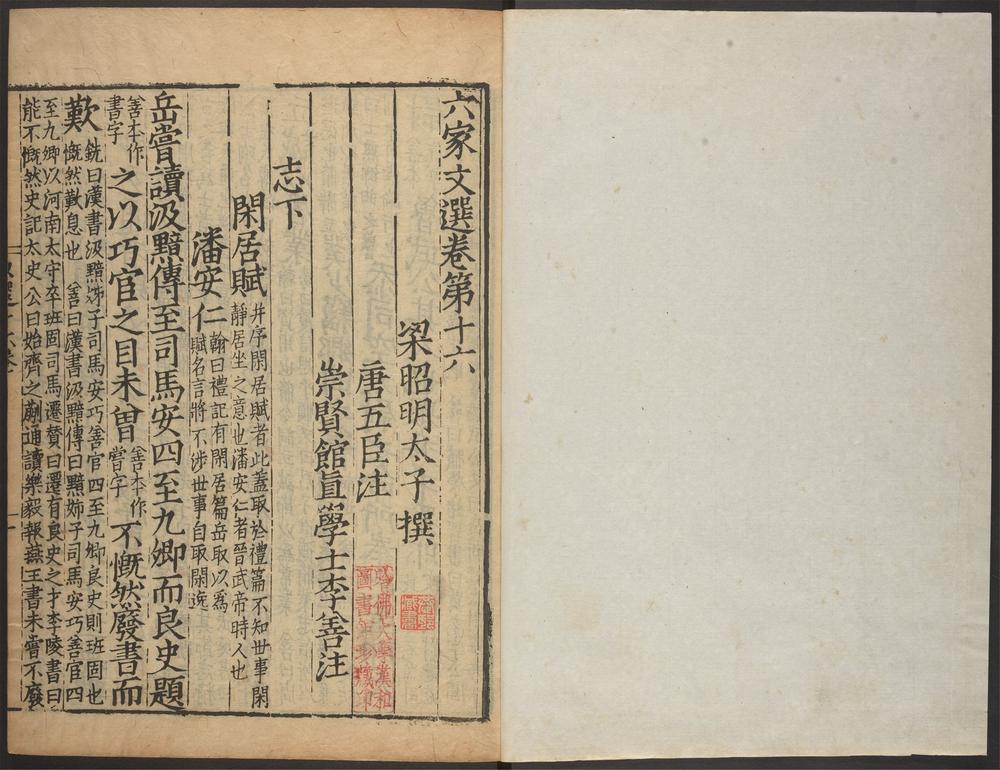 六家文選卷第十六
梁昭明太子撰
唐五臣注
崇賢館直學士李善注
志下
閑居賦
并序閑居賦者此蓋取於禮篇不知丗事閑
靜居坐之意也潘安仁者晉武帝時人也
潘安仁
翰曰禮記有閑居篇岳取以為
賦名言將不涉丗事自取閑逸
岳嘗讀汲黯傳至司馬安四至九卿而良史題
善本作
書字
之以巧宦之目未曾
善本作
嘗字
不慨然廢書而
歎
銑曰漢書汲黯姊子司馬安巧善宦四至九卿良史則班固也
慨然歎息也 善曰漢書汲黯傳曰黯姊子司馬安巧善宦四
至九卿以河南太守卒班固司馬遷贊曰遷有良史之才李陵書曰
能不慨然史記太史公曰始齊之蒯通讀樂毅報燕王書未嘗不廢
哈佛大學漢和
圖書館珍藏印